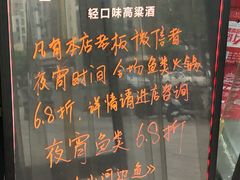 轻口味高粱酒
凡有本店老板微信者
夜宵时间 全场鱼类火锅
6.8折，详情请进店咨询
夜宵鱼类 6.8折